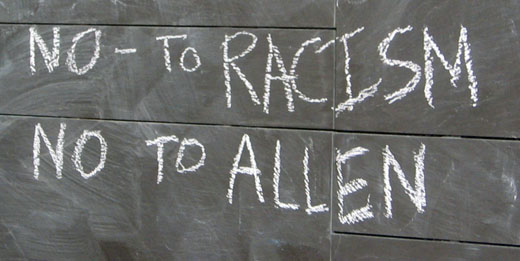 NO - TO RACISM
NO TO ALLEN